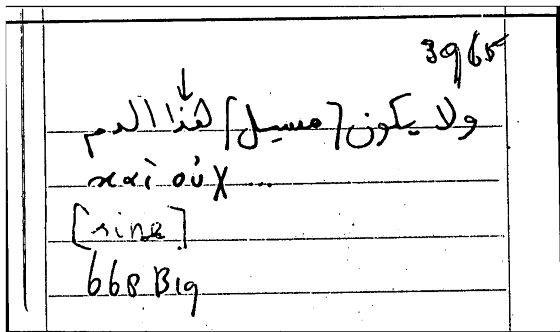 3965
ولا يكون [مسيل] لهذا الدم
καὶ οὐχ ...
[sine]
668 B19